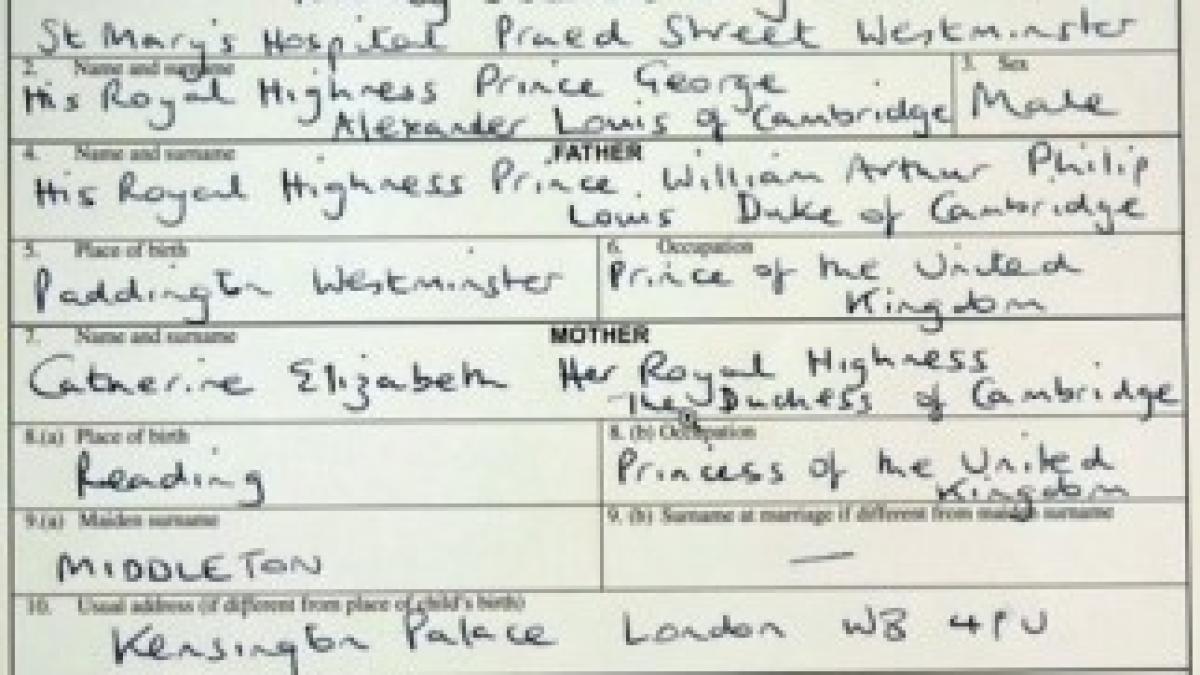 St Mary's Hospital Praed Street Westminster
2. Name and surname
3. Sex
His Royal Highness Prince George
Male
Alexander Louis of Cambridge
4. Name and surname FATHER
His Royal Highness Prince William Arthur Philip
Louis Duke of Cambridge
5. Place of birth
6. Occupation
Paddington Westminster
Prince of the United
Kingdom
7. Name and surname MOTHER
Catherine Elizabeth Her Royal Highness
The Duchess of Cambridge
8.(a) Place of birth
8. (b) Occupation
Reading
Princess of the United
Kingdom
9.(a) Maiden surname
9. (b) Surname at marriage if different from maiden surname
MIDDLETON
—
10. Usual address (if different from place of child's birth)
Kensington Palace London W8 4PU